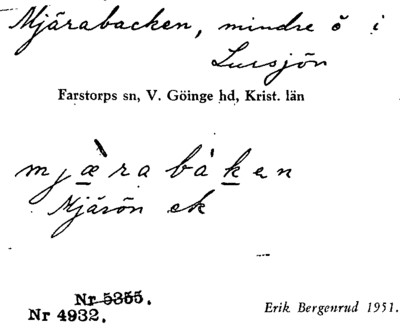 Mjärabacken, mindre ö i
Lursjön
Farstorps sn, V. Göinge hd, Krist. län
mjæ̀rabàken
Mjäsön ek
Nr 5355.
Nr 4932.
Erik Bergenrud 1951.